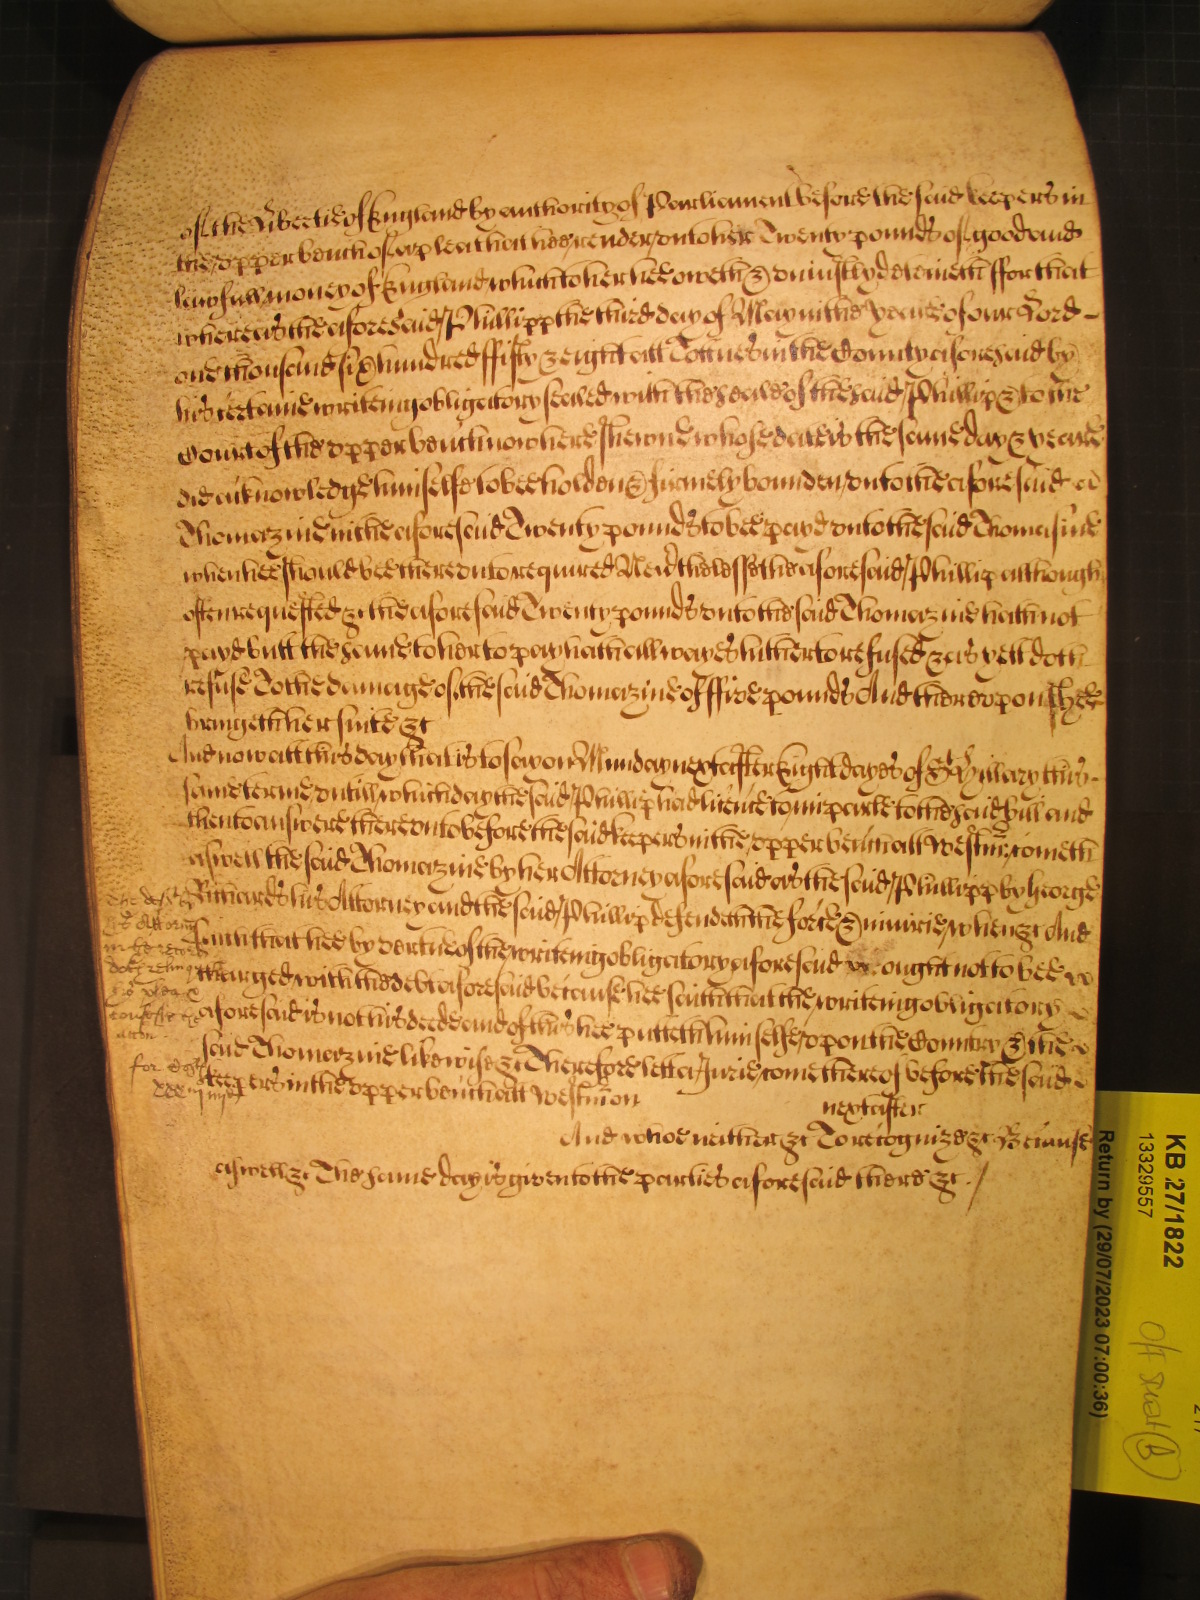 of the Libertie of England by authority of Parliament before the said keepers in
the upper bench of a plea that hee render unto her Twenty pounds of good and
lawfull money of England which to her hee oweth & uniustly deteineth ffor that
whereas the aforesaid Phillipp the third day of May in the yeare of our Lord
one thousand six hundred ffifty & eight att Totnes in the County aforesaid by
his certaine writeing obligatory sealed with the seale of the said Phillip & to the
Court of the upper bench now here shewne whose date is the same day & yeare
did acknowledge himselfe to bee holden & firmely bounden unto the aforesaid
Thomazine in the aforesaid Twenty pounds to bee payd unto the said Thomasine
when hee should bee thereunto required Neverthelesse the aforesaid Phillip although
often requested &c the aforesaid Twenty pounds unto the said Thomazine hath not
payd butt the same to her to pay hath allwayes hitherto refused & as yett doth
refuse To the damage of the said Thomazine of ffive pounds And thereupon shee
bringeth her suite &c
And now att this day that is to say on Munday next after Eight dayes of St Hillary this
same terme untill which day the said Phillip had licence to imparle to the said bill and
then to answere thereunto before the said keepers in the upper bench att Westmr cometh
aswell the said Thomazine by her Attorney aforesaid as the said Phillipp by George
Richards his Attorney and the said Phillip defendeth the force & iniurie when &c And
saith that hee by vertue of the writeing obligatory aforesaid ought not to bee
charged with the debt aforesaid because hee saith that the writeing obligatory
aforesaid is not his deede and of this hee putteth himselfe upon the Country & the
said Thomazine likewise &c Therefore lett a Jurie come thereof before the said
keepers in the upper bench att Westmr on
next after
And whoe neither &c To recognize &c Because
aswell &c The same day is given to the parties aforesaid there &c
The deft by
his Attorny
in
doth relinq
his plea &
confesse
accon
for
KB 27/1822
13329557
Return by (29/07/2023 07:00:36)